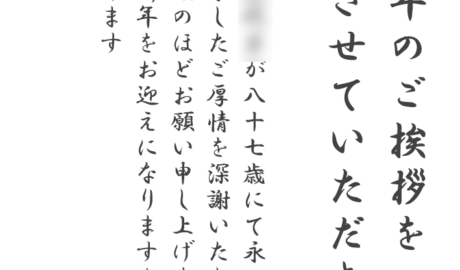 年のご挨拶を
させていただ
が八十七歳にて永
したご厚情を深謝いた
のほどお願い申し上げ
年をお迎えになります
ます